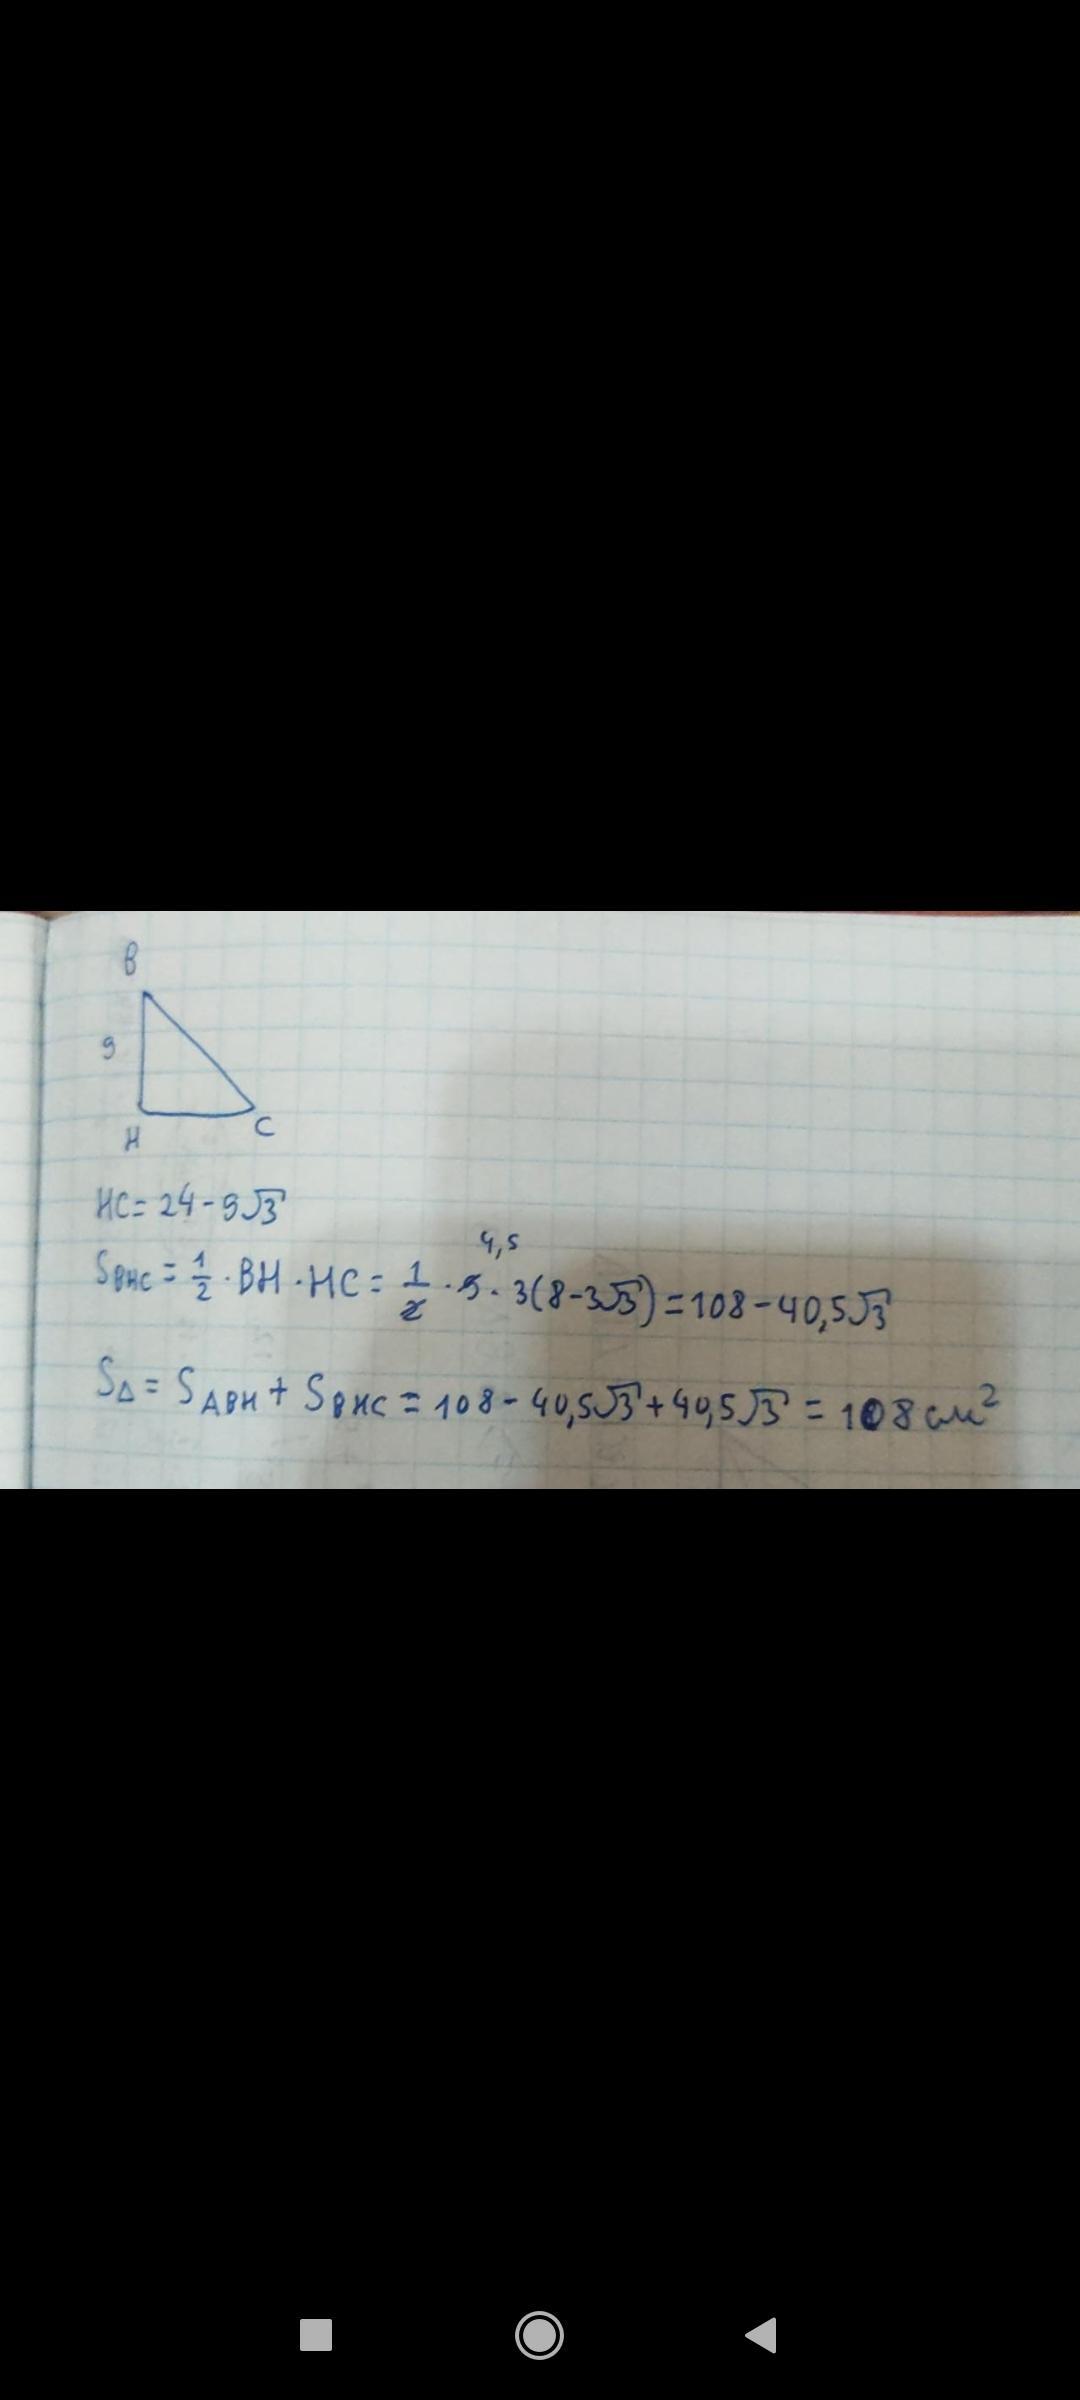 В
9
Н
С
НС = 24 - 9√3
4,5
S_BHC = 1/2 · BH · HC = 1/2 · 9 · 3(8-3√3) = 108 - 40,5√3
S_Δ = S_ABH + S_BHC = 108 - 40,5√3 + 40,5√3 = 108 см²